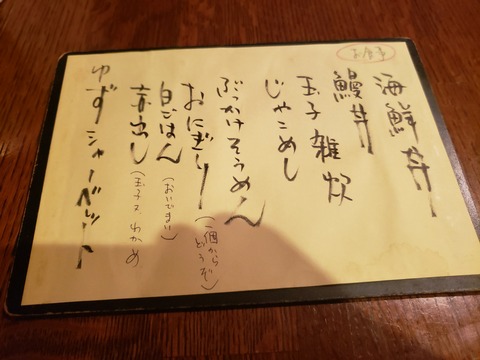 お食事
海鮮丼
鰻丼
玉子雑炊
じゃこめし
ぶっかけそうめん
おにぎり（一個からどうぞ）
白ごはん（おいでまい）
赤出し（玉子 わかめ）
ゆずシャーベット